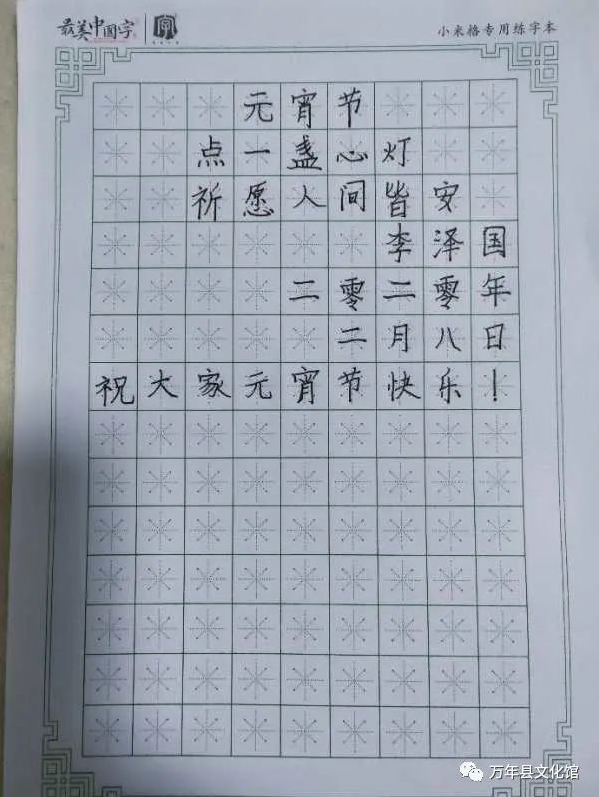 最美中国字
小米格专用练字本
元宵节
点一盏心灯
祈愿人间皆安
李泽国
二零二零年
二月八日
祝大家元宵节快乐！
万年县文化馆